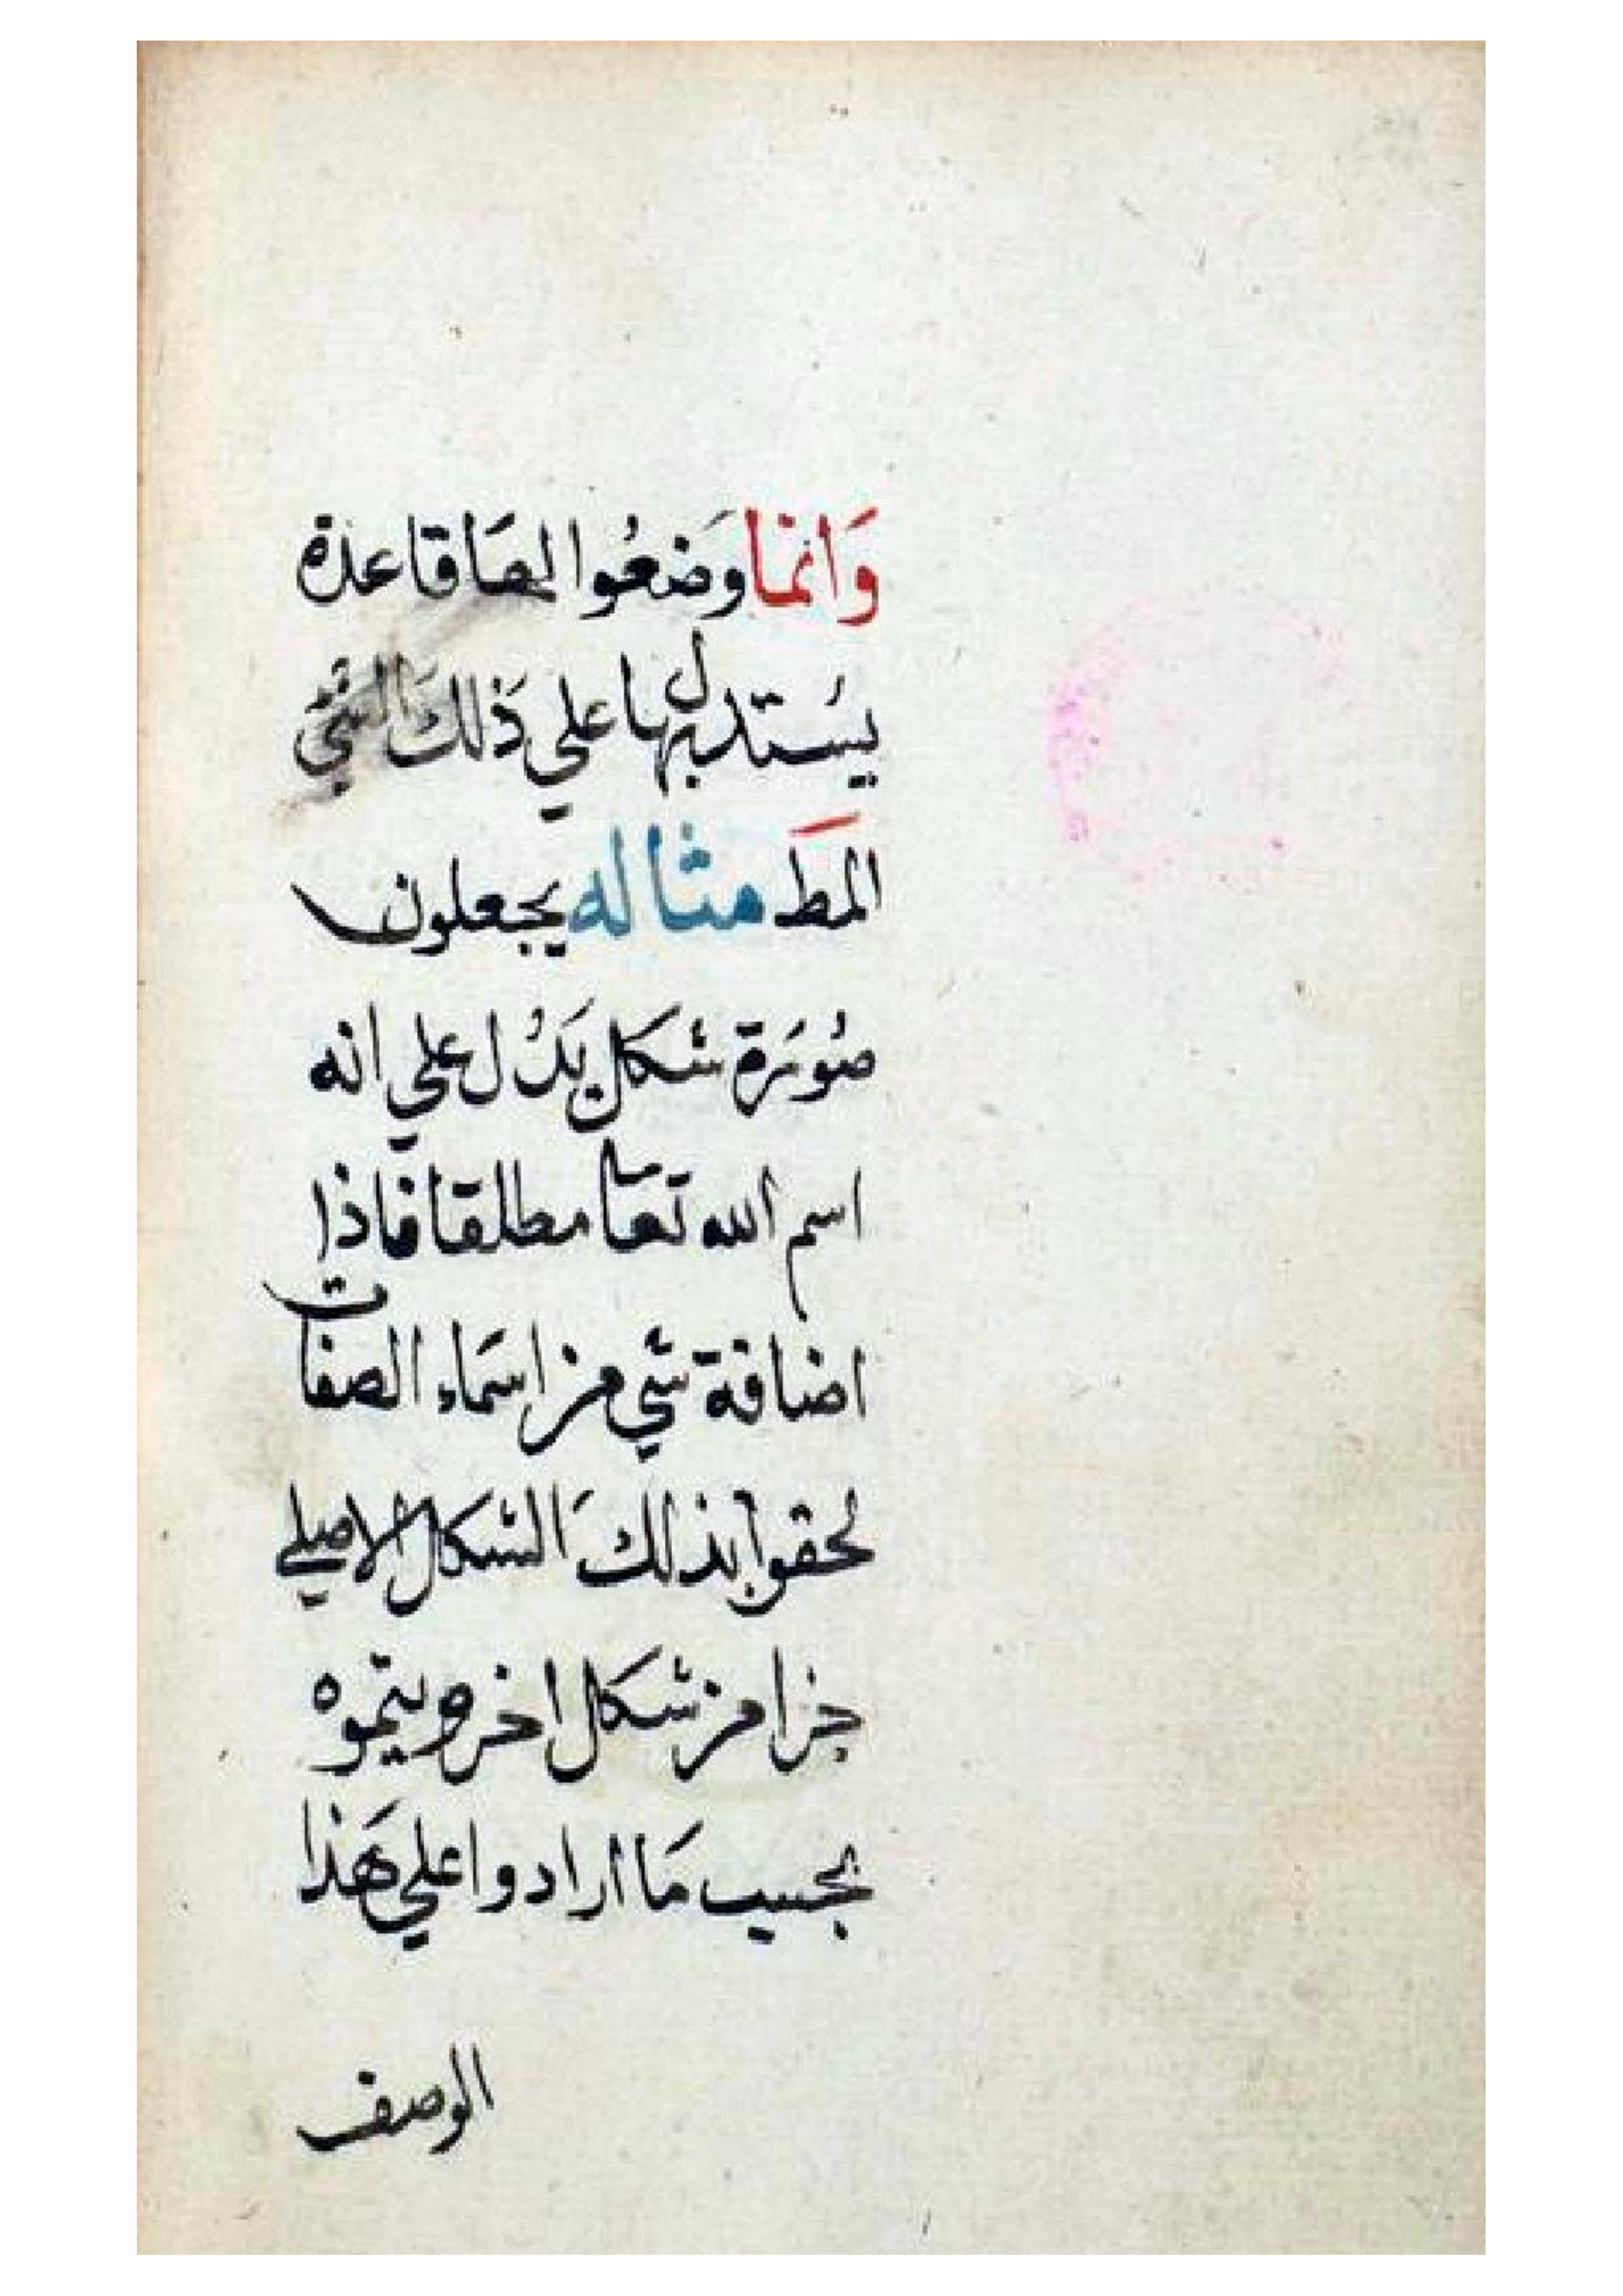 وَانمَا وَضعُوا لهَا قاعدة
يسَتدل بها علي ذَلكَ الشيَّ
المطَ مثاله يجعلون
صُورَة شكل يَدُل علي انه
اسم الله تعا مطلقا فاذا
اضافة شي من اسمَاء الصفات
لحقوا بذلكَ الشكل الاصلي
جزا من شكل اخر ويتموه
بحسب مَا ارادوا علي هَذا
الوصف